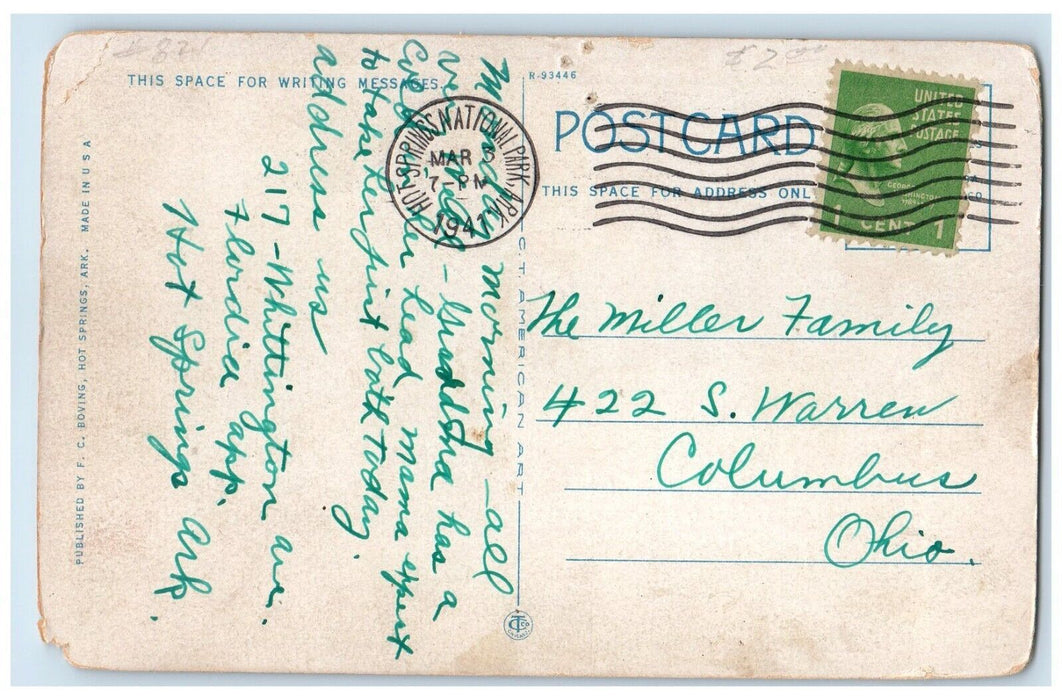 # 821
$2.00
THIS SPACE FOR WRITING MESSAGES.
R-93446
POST CARD
THIS SPACE FOR ADDRESS ONLY
HOT SPRINGS NATIONAL PARK, ARK.
MAR 3
7-PM
1941
UNITED
STATES
POSTAGE
GEORGE
WASHINGTON
1 CENT 1
Monday Morning - all
well - Grandma has a
cold in her head mama expect
to take her first bath today.
address us
217 - Whittington ave.
Flordia app.
Hot Springs Ark.
The Miller Family
422 S. Warren
Columbus
Ohio.
PUBLISHED BY F. C. BOVING, HOT SPRINGS, ARK. MADE IN U S A
C.T. AMERICAN ART